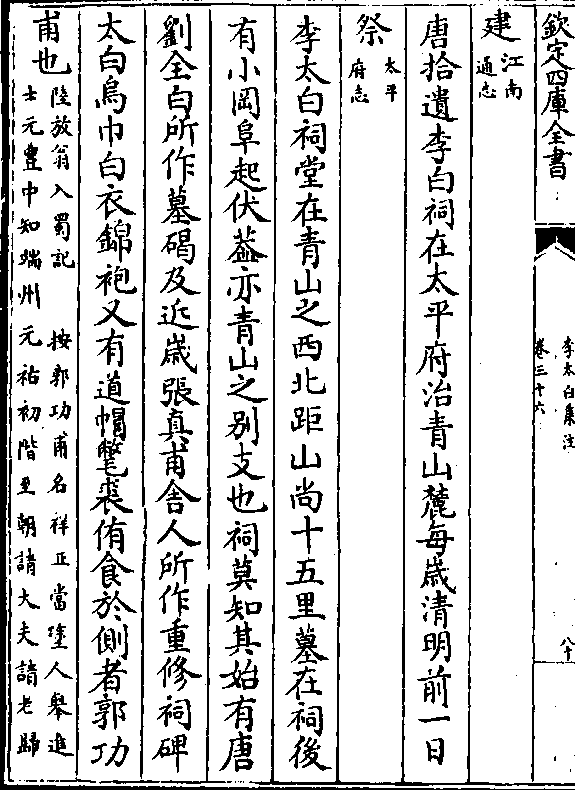 欽定四庫全書
李太白集注
卷三十六
八十
建江南
通志
唐拾遺李白祠在太平府治青山麓每歲清明前一日
祭太平
府志
李太白祠堂在青山之西北距山尚十五里墓在祠後
有小岡阜起伏葢亦青山之别支也祠莫知其始有唐
劉全白所作墓碣及近歲張真甫舍人所作重修祠碑
太白烏巾白衣錦袍又有道帽氅裘侑食於側者郭功
甫也陸放翁入蜀記 按郭功甫名祥正當塗人舉進
士元豐中知端州元祐初階至朝請大夫請老歸